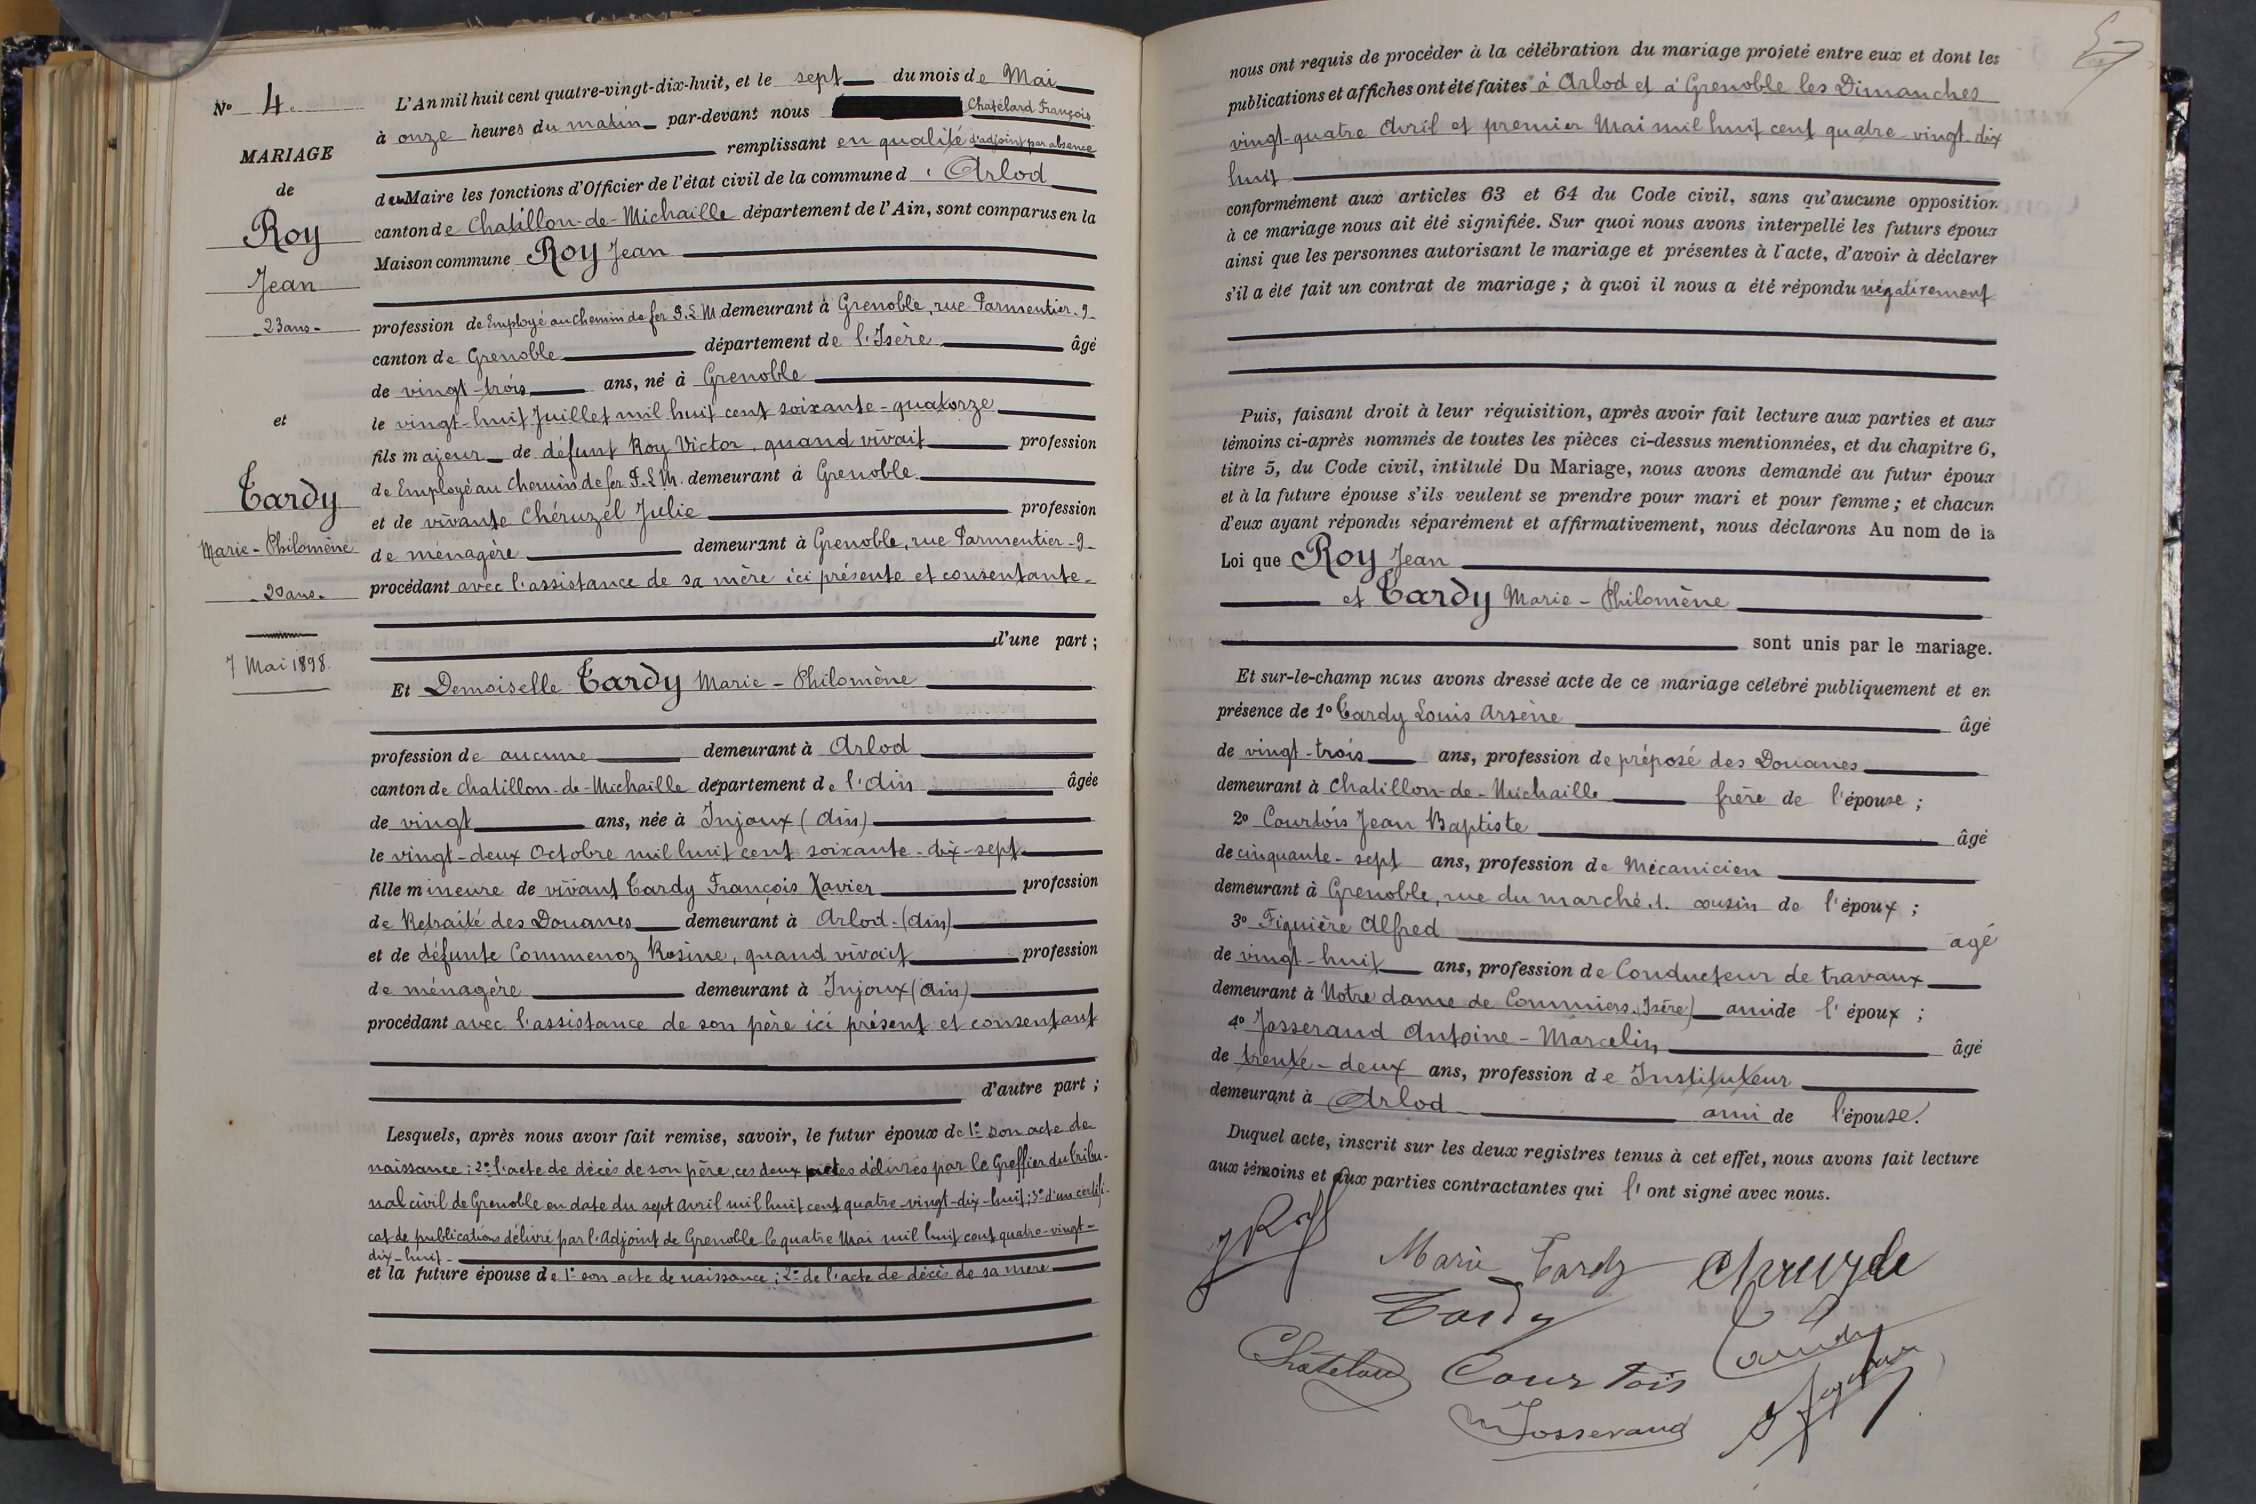 N° 4.
MARIAGE
de
Roy
Jean
23 ans
et
Tardy
Marie-Philomène
20 ans.
7 Mai 1898.
L'An mil huit cent quatre-vingt-dix-huit, et le sept du mois de Mai
à onze heures du matin par-devant nous Chatelard François
remplissant en qualité d'adjoint par absence
du Maire les fonctions d'Officier de l'état civil de la commune d'Arlod
canton de Chatillon-de-Michaille département de l'Ain, sont comparus en la
Maison commune Roy Jean
profession de Employé au chemin de fer P.L.M demeurant à Grenoble, rue Parmentier. 9
canton de Grenoble département de l'Isère âgé
de vingt-trois ans, né à Grenoble
le vingt-huit Juillet mil huit cent soixante-quatorze
fils majeur de défunt Roy Victor, quand vivait profession
de Employé au Chemin de fer P.L.M. demeurant à Grenoble
et de vivante Chéruzel Julie profession
de ménagère demeurant à Grenoble, rue Parmentier-9-
procédant avec l'assistance de sa mère ici présente et consentante-
d'une part ;
Et Demoiselle Tardy Marie-Philomène
profession de aucune demeurant à Arlod
canton de Chatillon-de-Michaille département de l'Ain âgée
de vingt ans, née à Injoux (Ain)
le vingt-deux Octobre mil huit cent soixante-dix-sept
fille mineure de vivant Tardy François Xavier profession
de Retraité des Douanes demeurant à Arlod-(Ain)
et de défunte Commenoz Rosine, quand vivait profession
de ménagère demeurant à Injoux (Ain)
procédant avec l'assistance de son père ici présent et consentant
d'autre part ;
Lesquels, après nous avoir fait remise, savoir, le futur époux de 1° son acte de
naissance ; 2° l'acte de décès de son père, ces deux actes délivrés par le Greffier du tribu-
nal civil de Grenoble en date du sept Avril mil huit cent quatre-vingt-dix-huit ; 3° d'un certifi-
cat de publications délivré par l'Adjoint de Grenoble le quatre Mai mil huit cent quatre-vingt-
dix-huit
et la future épouse de 1° son acte de naissance ; 2° de l'acte de décès de sa mère
nous ont requis de procéder à la célébration du mariage projeté entre eux et dont les
publications et affiches ont été faites à Arlod et à Grenoble les Dimanches
vingt-quatre Avril et premier Mai mil huit cent quatre-vingt-dix
huit
conformément aux articles 63 et 64 du Code civil, sans qu'aucune opposition
à ce mariage nous ait été signifiée. Sur quoi nous avons interpellé les futurs époux
ainsi que les personnes autorisant le mariage et présentes à l'acte, d'avoir à déclarer
s'il a été fait un contrat de mariage ; à quoi il nous a été répondu négativement
Puis, faisant droit à leur réquisition, après avoir fait lecture aux parties et aux
témoins ci-après nommés de toutes les pièces ci-dessus mentionnées, et du chapitre 6,
titre 5, du Code civil, intitulé Du Mariage, nous avons demandé au futur époux
et à la future épouse s'ils veulent se prendre pour mari et pour femme ; et chacun
d'eux ayant répondu séparément et affirmativement, nous déclarons Au nom de la
Loi que Roy Jean
et Tardy Marie-Philomène
sont unis par le mariage.
Et sur-le-champ nous avons dressé acte de ce mariage célébré publiquement et en
présence de 1° Tardy Louis Arsène âgé
de vingt-trois ans, profession de préposé des Douanes
demeurant à Chatillon-de-Michaille frère de l'épouse ;
2° Courtois Jean Baptiste âgé
de cinquante-sept ans, profession de Mécanicien
demeurant à Grenoble, rue du marché. 1. cousin de l'époux ;
3° Figuière Alfred agé
de vingt-huit ans, profession de Conducteur de travaux
demeurant à Notre dame de Commiers. (Isère) ami de l'époux ;
4° Josserand Antoine-Marcelin âgé
de trente-deux ans, profession de Instituteur
demeurant à Arlod ami de l'épouse.
Duquel acte, inscrit sur les deux registres tenus à cet effet, nous avons fait lecture
aux témoins et aux parties contractantes qui l'ont signé avec nous.
J Roy
Marie Tardy
Tardy
Courtois
Josserand